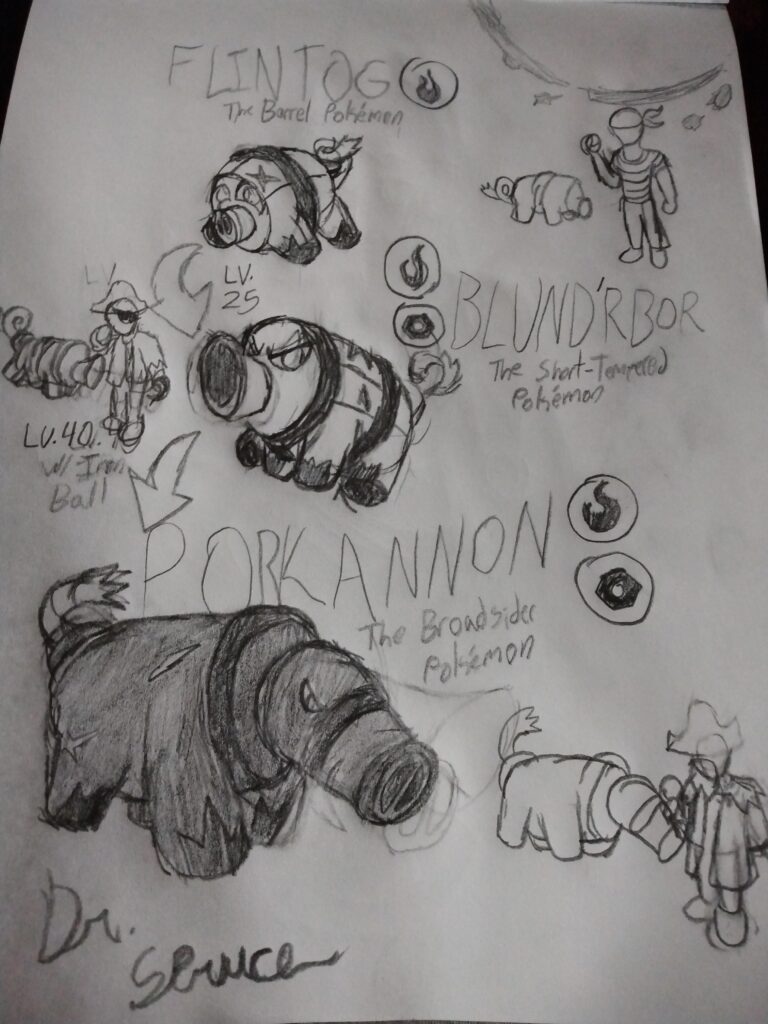 FLINTOG
The Barrel Pokémon
LV.
LV.
25
BLUND'RBOR
The Short-Tempered
Pokémon
LV.40.
w/ Iron
Ball
PORKANNON
The Broadsider
Pokémon
Dr.